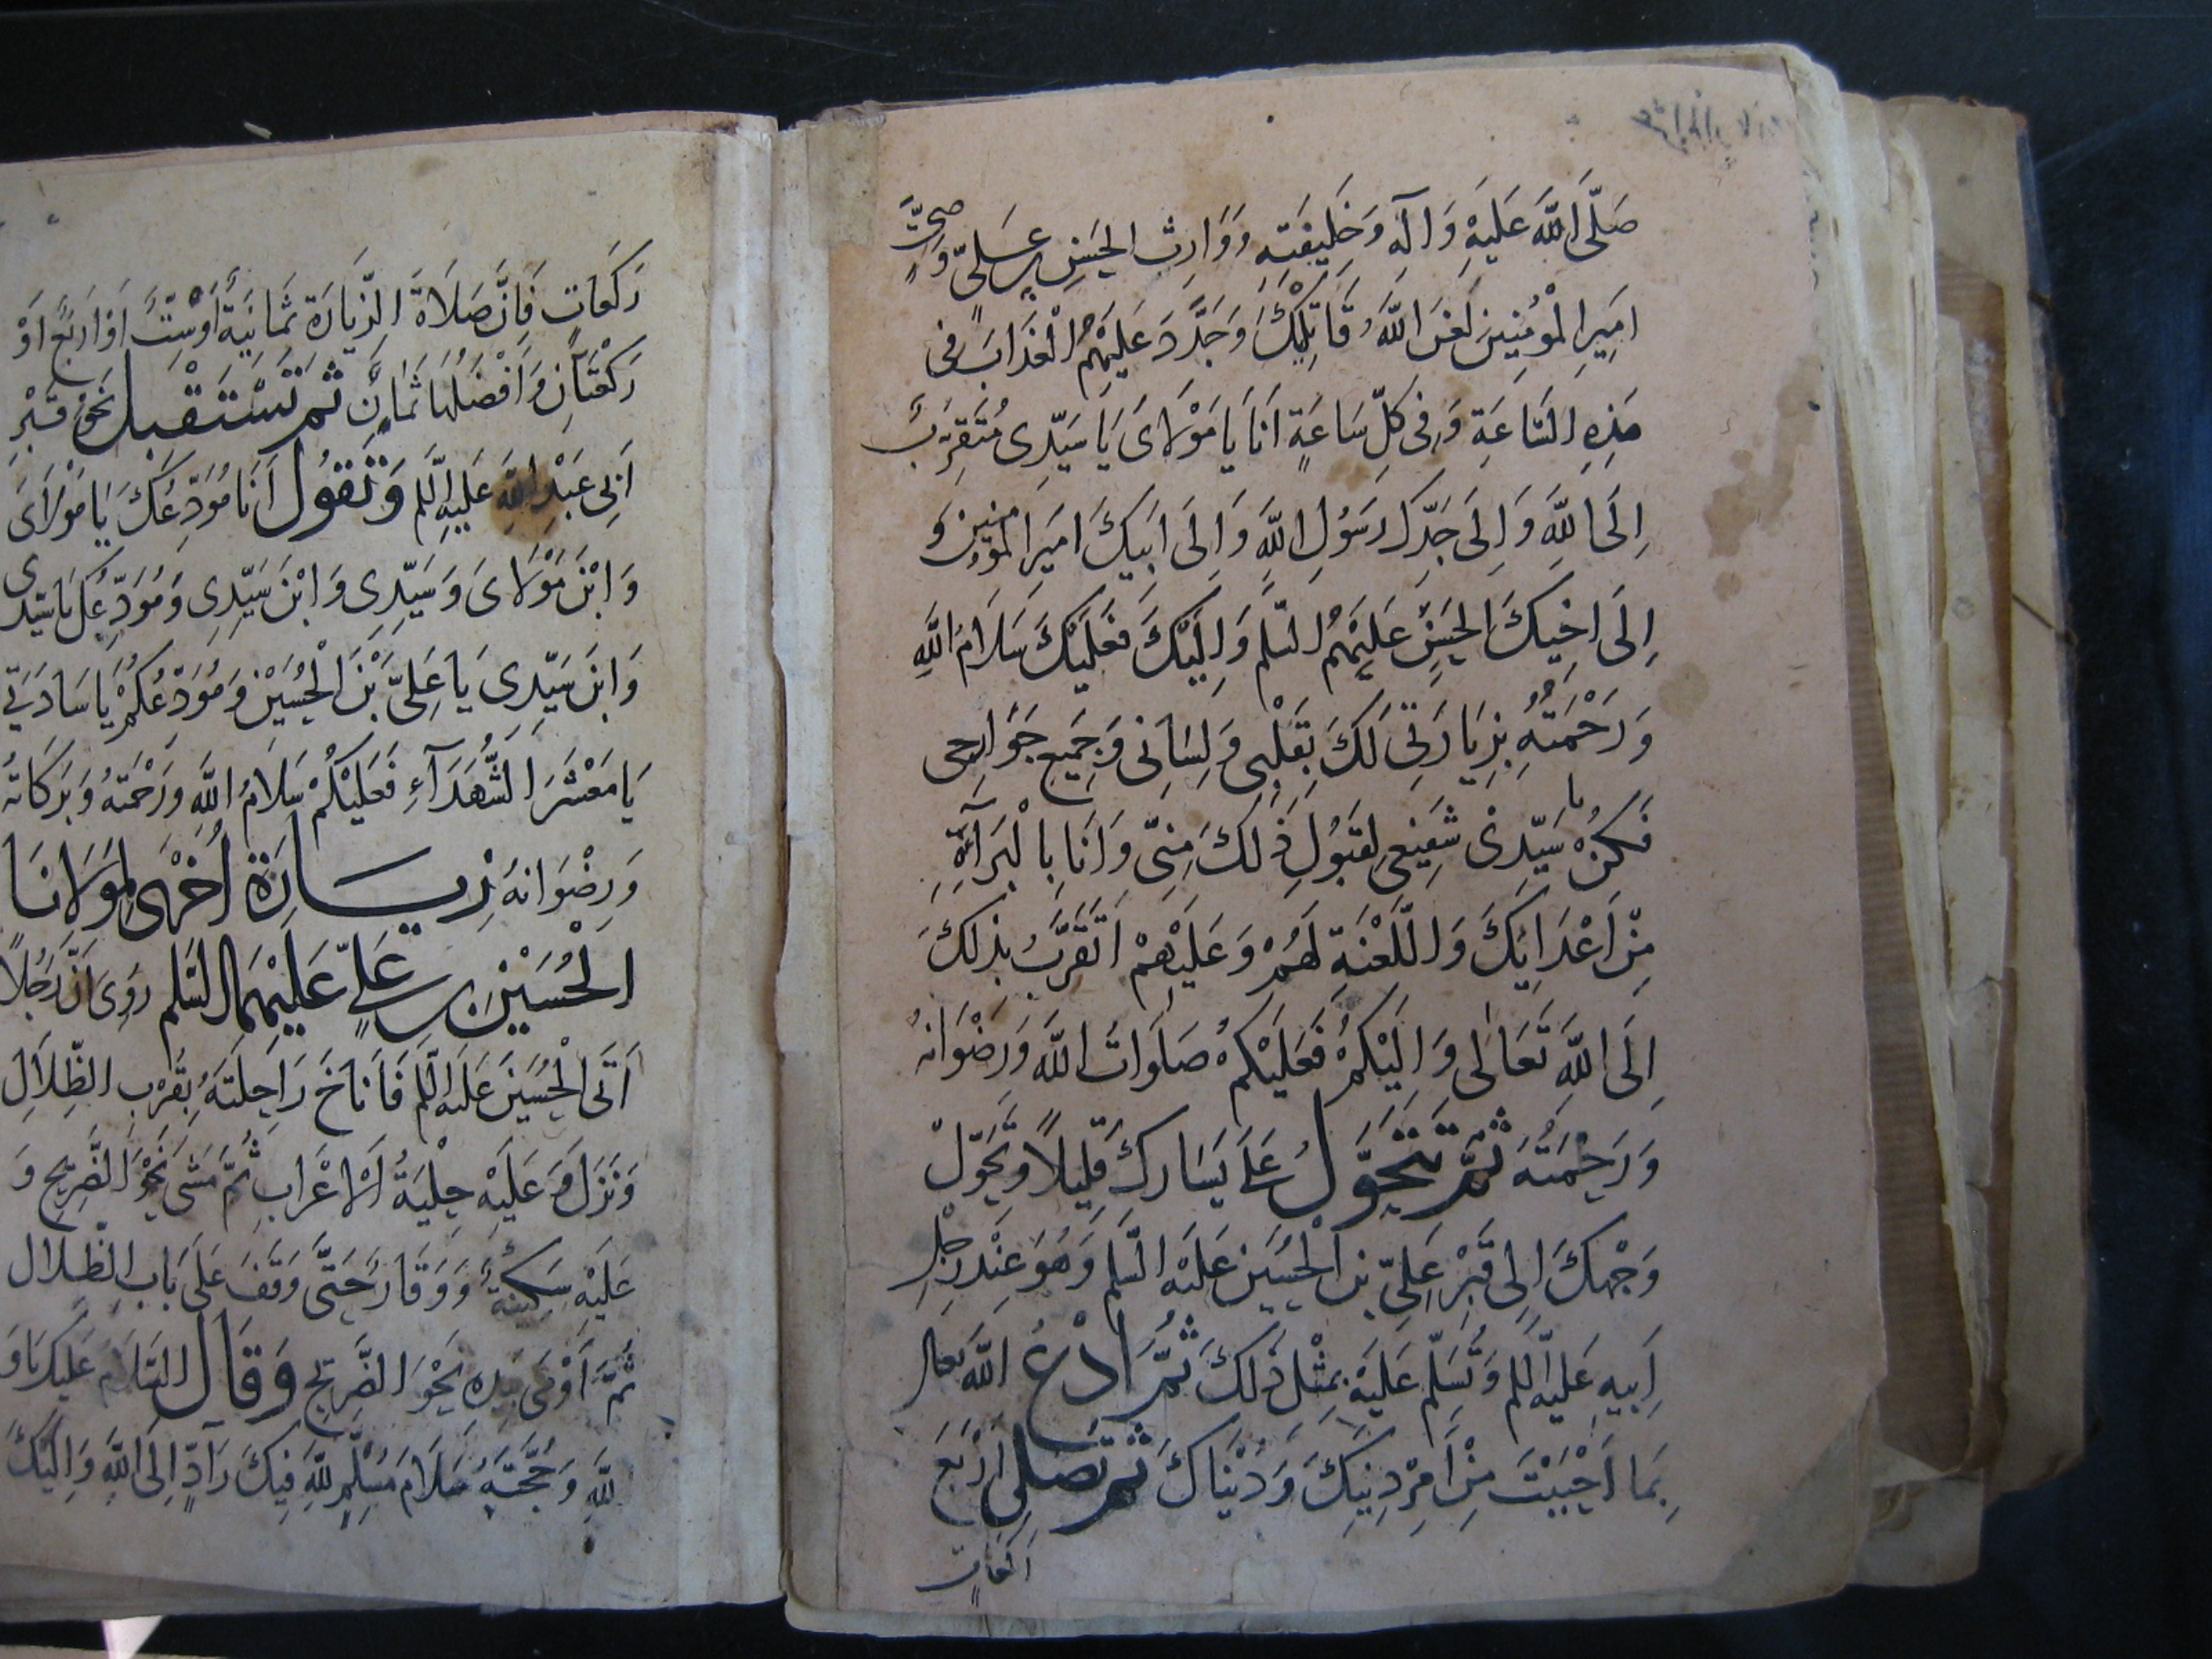 صَلَّى اللَّهُ عَلَيْهِ وَآلِهِ وَخَلِيفَتِهِ وَوَارِثِ الحَسَنِ بْنِ عَلِيٍّ وَصِيِّ
اَمِيرِ الْمُؤْمِنِينَ لَعَنَ اللَّهُ قَاتِلِيكَ وَجَدَّدَ عَلَيْهِمُ الْعَذَابَ فى
هَذِهِ السَّاعَةِ وَفى كُلِّ سَاعَةٍ اَنَا يَا مَوْلَاىَ يَا سَيِّدِى مُتَقَرِّبٌ
اِلَى اللَّهِ وَاِلَى جَدِّكَ رَسُولِ اللَّهِ وَاِلَى اَبِيكَ اَمِيرِ الْمُؤْمِنِينَ وَ
اِلَى اَخِيكَ الحَسَنِ عَلَيْهِمُ السّلم وَاِلَيْكَ فَعَلَيْكَ سَلَامُ اللَّهِ
وَرَحْمَتُهُ بِزِيَارَتِى لَكَ بِقَلْبِى وَلِسَانِى وَجَمِيعِ جَوَارِحِى
فَكُنْ يا سَيِّدِى شَفِيعِى لِقَبُولِ ذٰلِكَ مِنِّى وَاَنَا بِالْبَرَآءَةِ
مِنْ اَعْدَائِكَ وَاللَّعْنَةِ لَهُمْ وَعَلَيْهِمْ اَتَقَرَّبُ بِذلِكَ
اِلَى اللَّهِ تَعَالٰى وَاِلَيْكُمْ فَعَلَيْكُمْ صَلَوَاتُ اللَّهِ وَرِضْوَانُهُ
وَرَحْمَتُهُ ثُمَّ تَتَحَوَّلُ عَلَى يَسَارِكَ قَلِيلاً وَتُحَوِّلُ
وَجْهَكَ اِلى قَبْرِ عَلِيِّ بْنِ الْحُسَيْنِ عَلَيْهِ السّلم وَهُوَ عِنْدَ رِجْلِ
اَبِيهِ عَلَيْهِ السّلم وَتُسَلِّم عَلَيْهِ بِمِثْلِ ذٰلِكَ ثُمَّ ادْعُ اللَّهَ تعالى
بِمَا اَحْبَبْتَ مِنْ اَمْرِ دِينِكَ وَدُنْيَاكَ ثُمَّ تُصَلِّى اَرْبَعَ
رَكَعَاتٍ
رَكَعَاتٍ فَاِنَّ صَلَاةَ الزِّيَارَةِ ثَمَانِيَةٌ اَوْ سِتٌّ اَوْ اَرْبَعٌ اَوْ
رَكْعَتَانِ وَاَفْضَلُهَا ثَمَانٍ ثُمَّ تَسْتَقْبِلُ نَحْوَ قَبْرِ
اَبِى عَبْدِ اللَّهِ عَلَيْهِ السّلم وَتَقُولُ اَنَا مُوَدِّعُكَ يَا مَوْلَاىَ
وَابْنَ مَوْلَاىَ وَسَيِّدِى وَابْنَ سَيِّدِى وَمُوَدِّعُكَ يَا سَيِّدِى
وَابْنَ سَيِّدِى يَا عَلِىَّ بْنَ الْحُسَيْنِ وَمُوَدِّعُكُمْ يَا سَادَتِى
يَا مَعْشَرَ الشُّهَدَآءِ فَعَلَيْكُمْ سَلَامُ اللَّهِ وَرَحْمَتُهُ وَبَرَكَاتُهُ
وَرِضْوَانُهُ زِيَارَةٌ اُخْرٰى لِمَوْلَانَا
الْحُسَيْنِ بْنِ عَلِيٍّ عَلَيْهِمَا السّلم رُوِىَ اَنَّ رَجُلاً
اَتَى الْحُسَيْنَ عَلَيْهِ السّلم فَاَنَاخَ رَاحِلَتَهُ بِقُرْبِ الظِّلَالِ
وَنَزَلَ وَعَلَيْهِ حِلْيَةُ الْاَعْرَابِ ثُمَّ مَشَى نَحْوَ الضَّرِيحِ وَ
عَلَيْهِ سَكِينَةٌ وَوَقَارٌ حَتَّى وَقَفَ عَلَى بَابِ الظِّلَالِ
ثُمَّ اَوْمَى بِيَدِهِ نَحْوَ الضَّرِيحِ وَقَالَ السَّلَامُ عَلَيْكَ يَا وَ
لِىَّ اللَّهِ وَحُجَّتَهُ سَلَامَ مُسَلِّمٍ لِلَّهِ فِيكَ رَآدٍّ اِلَى اللَّهِ وَاِلَيْكَ